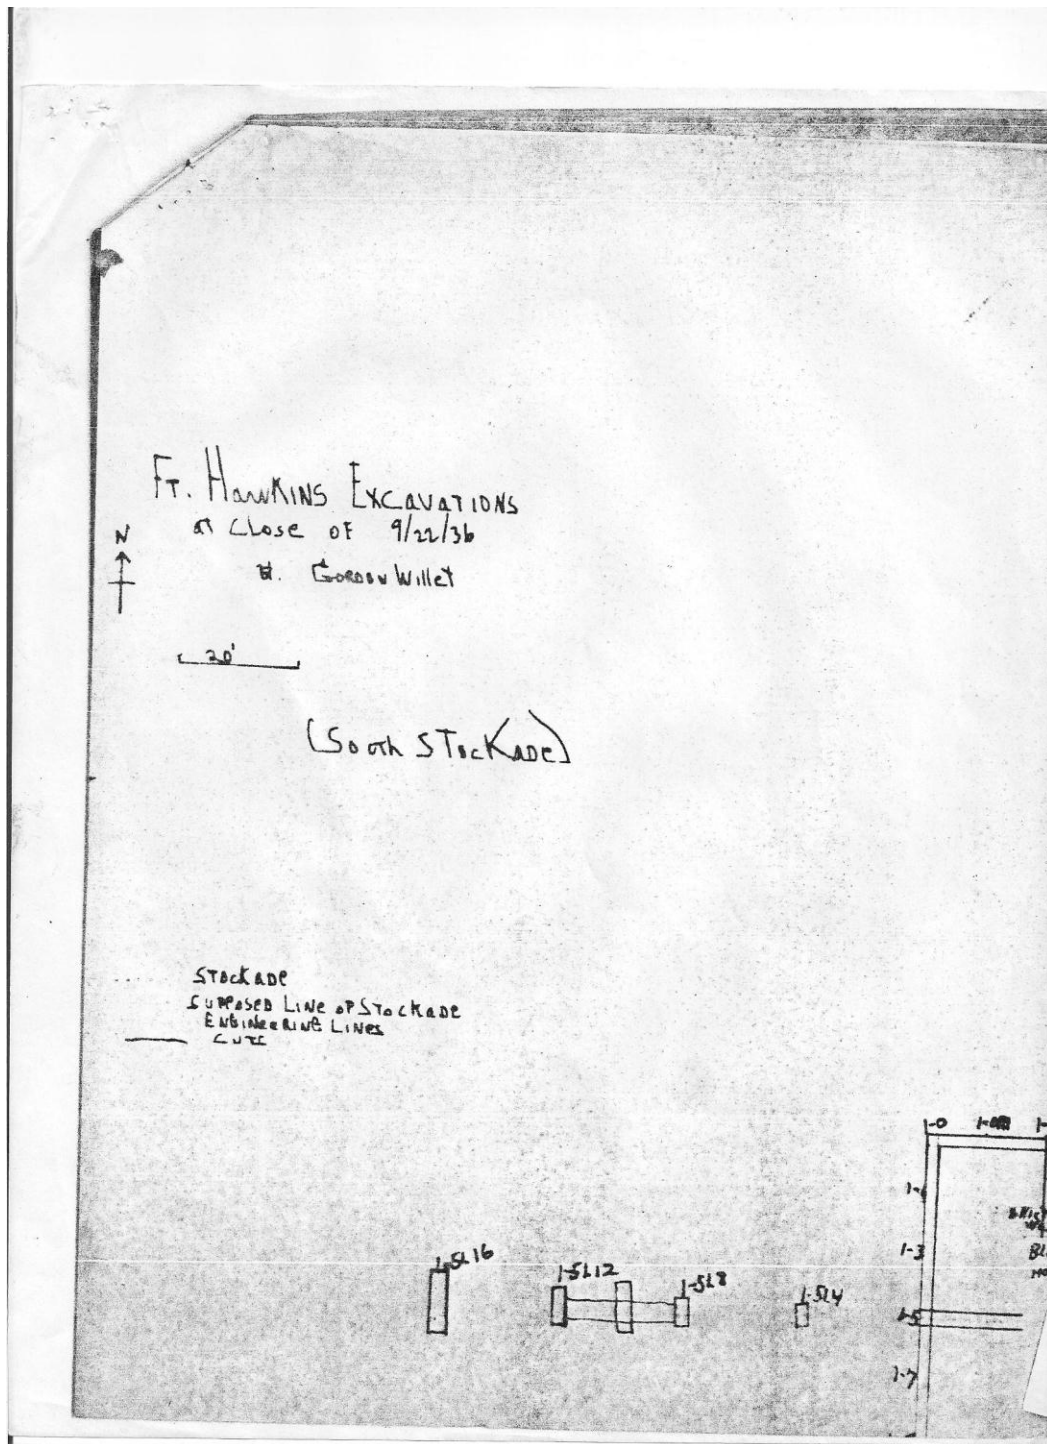 FT. HAWKINS EXCAVATIONS
at CLOSE OF 9/22/36
GORDON Willet
N
20'
(South STOCKADE)
STOCKADE
SUPPOSED LINE OF STOCKADE
ENGINEERING LINES
CUTS
1-0
1-3
1-5
1-7
1-5L16
1-5L12
1-5L8
1-5L4